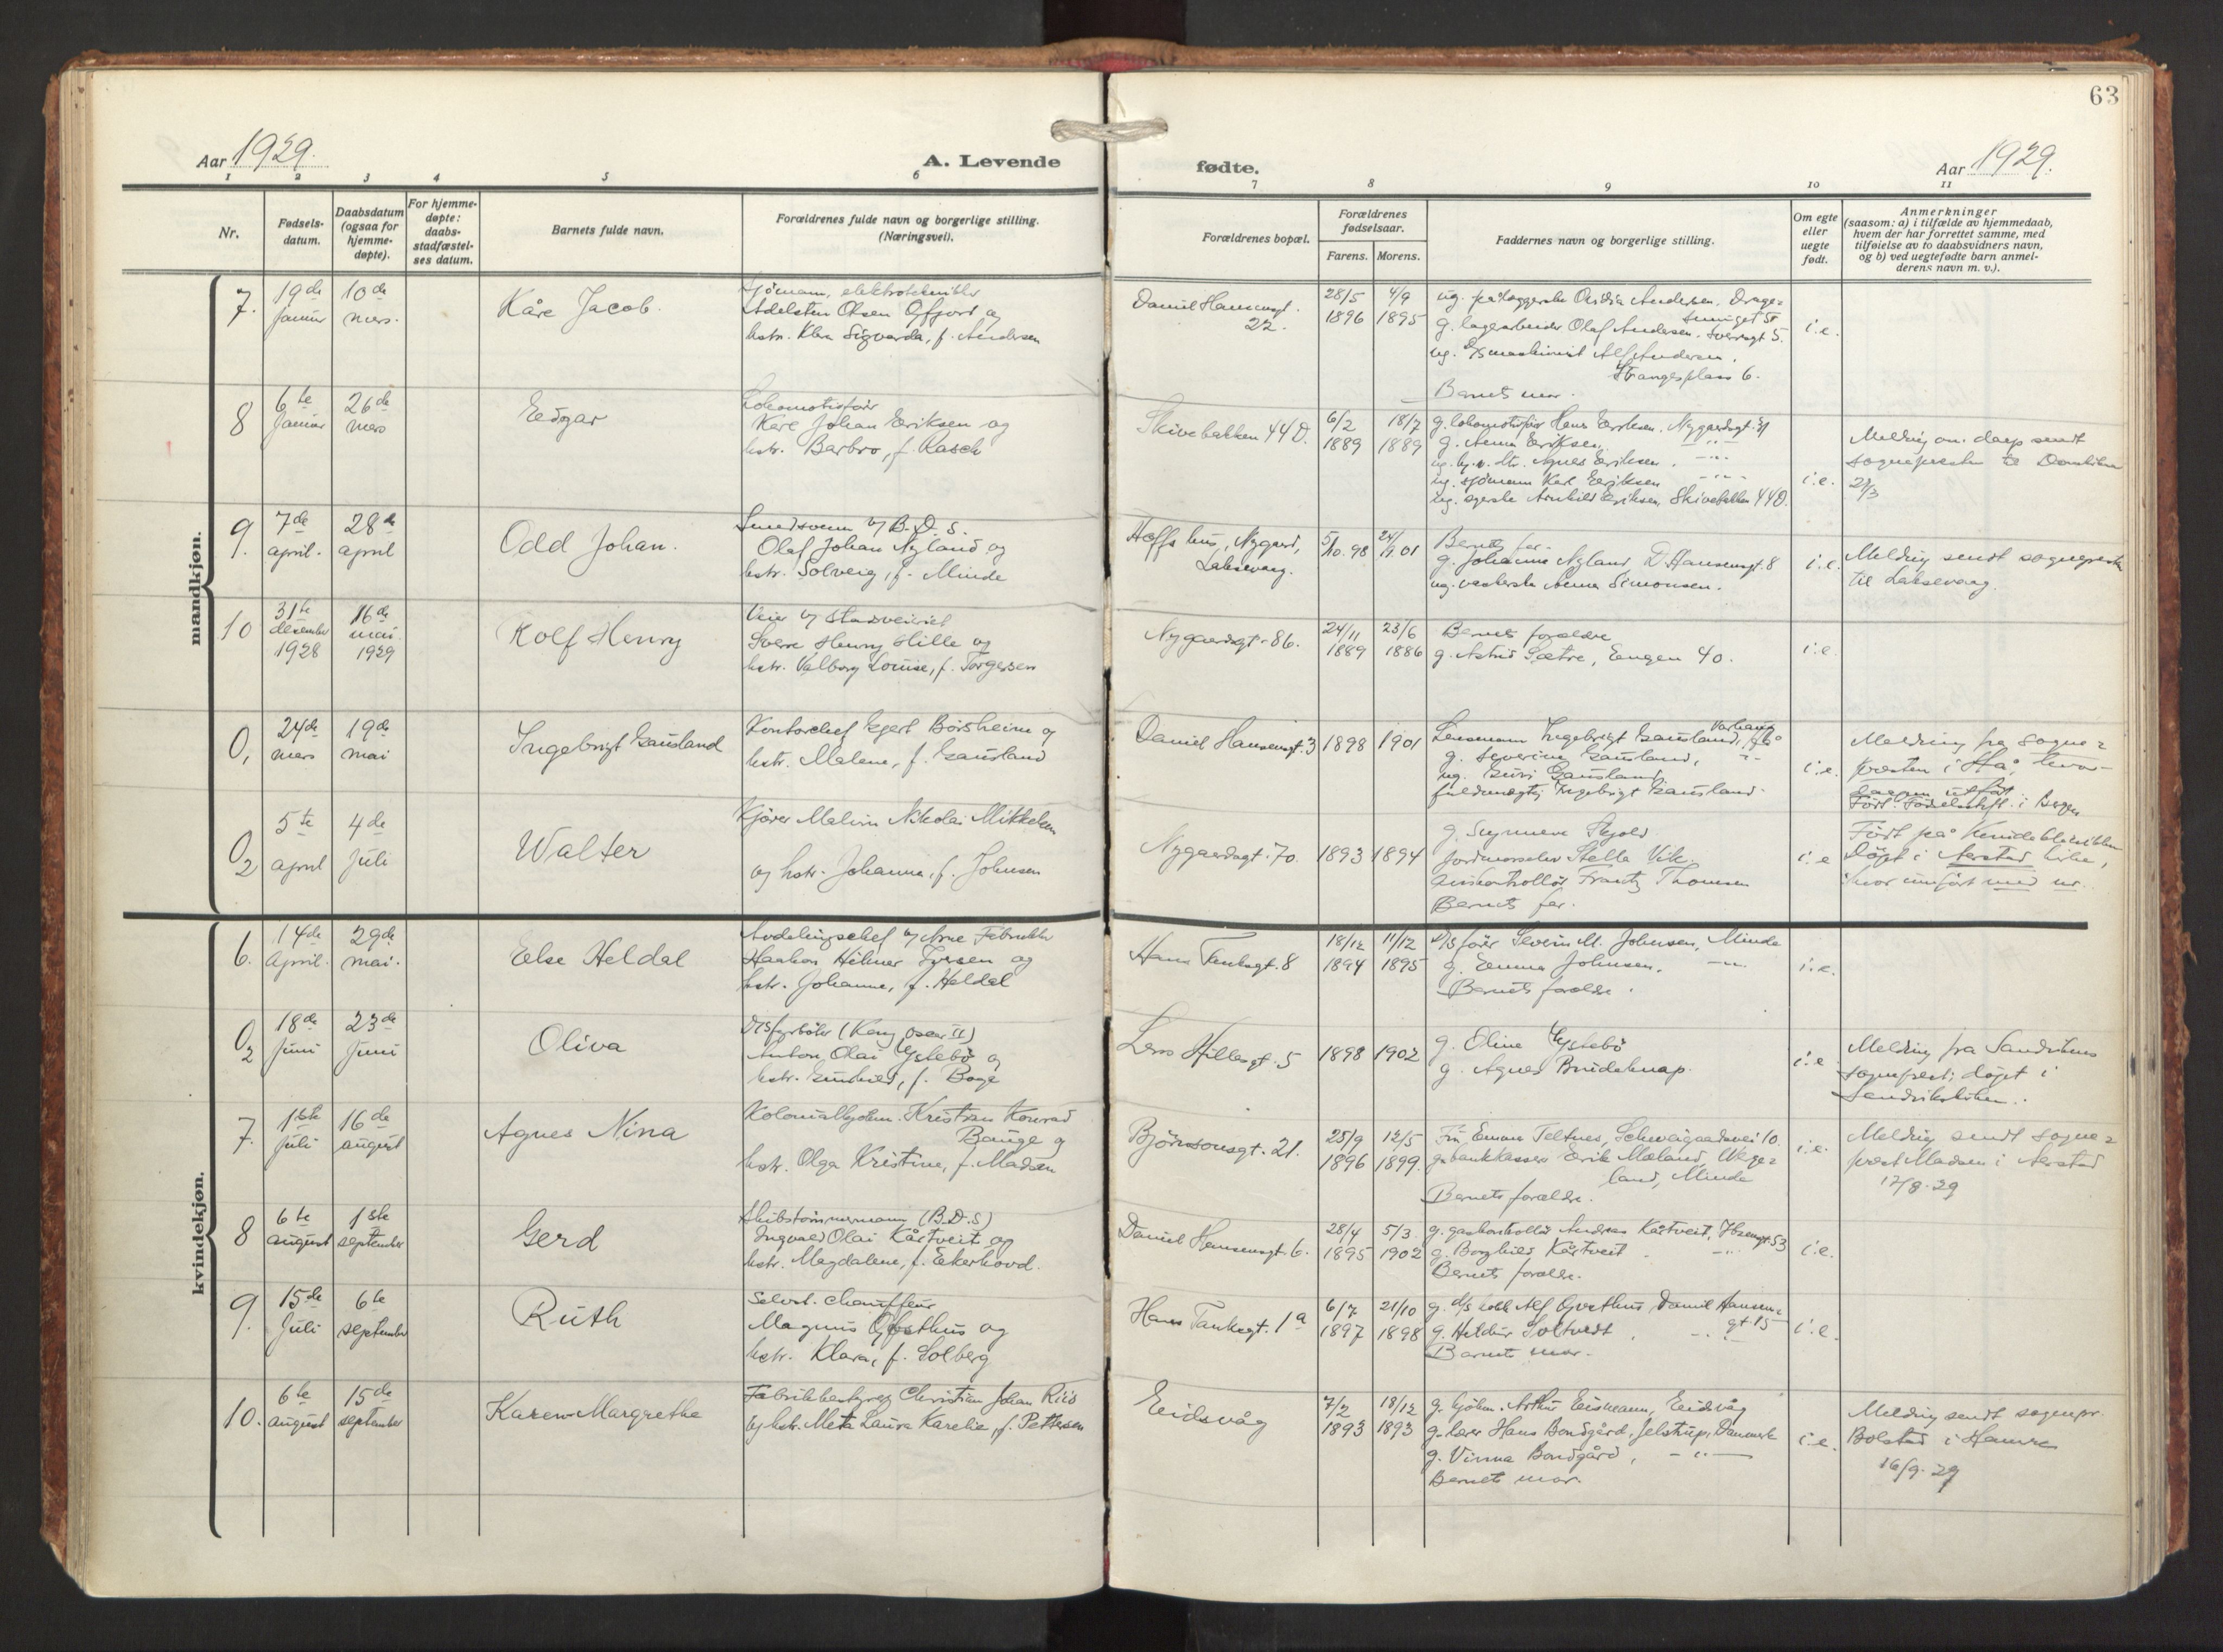 63
Aar 1929.
A. Levende
fødte.
Aar 1929.
1 2 3 4 5 6 7 8 9 10 11
Nr.
Fødsels-
datum.
Daabsdatum
(ogsaa for
hjemme-
døpte).
For hjemme-
døpte:
daabs-
stadfæstel-
ses datum.
Barnets fulde navn.
Forældrenes fulde navn og borgerlige stilling.
(Næringsvei).
Forældrenes bopæl.
Forældrenes
fødselsaar.
Farens. Morens.
Faddernes navn og borgerlige stilling.
Om egte
eller
uegte
født.
Anmerkninger
(saasom: a) i tilfælde av hjemmedaab,
hvem der har forrettet samme, med
tilføielse av to daabsvidners navn,
og b) ved uegtefødte barn anmel-
derens navn m. v.).
mandkjøn.
7. 19de januar 10de mars. Kåre Jacob.
Adelsten Olsen Gfjord og
hstr. Klara Sigvarda, f. Andersen
Daniel Hansensgt. 22.
28/5 1896 4/9 1895
g. lagerarbeider Olaf Andersen. Sverresgt 5.
ug. maskinist Alf Andersen.
Strangesplass 6.
Barnets mor.
i.e.
8 6te januar 26de mars Edgar
Lokomotivfører
Kåre Johan Eriksen og
hstr. Barbro, f. Rasch
Skivebakken 44 D.
6/2 1889 18/7 1889
g. lokomotivfører Hans Eriksen. Nygaardsgt. 31
g. Anna Eriksen. -"-
ug. Agnes Eriksen. -"-
ug. sjömann Karl Eriksen -"-
Eriksen, Skivebakken 44 D.
i.e.
Melding om daap sendt
sogneprest til Domkirken
21/3
9. 7de april. 28de april Odd Johan.
Smedsvenn v/ B.D.S.
Olaf Johan Nyland og
hstr. Solveig, f. Minde
Hoffs hus, Nygard,
Laksevaag.
5/10.98 24/ 1901
Barnets far.
g. Johanna Nyland, D. Hansensgt. 8
ug. Anna Simonsen.
i.e.
Melding sendt sogneprest
til Laksevaag.
10 31te desember 1928 16de mai. 1929 Rolf Henry
Sverre Henry Hille og
hstr. Valborg Louise, f. Torgersen
Nygaardsgt. 86.
24/11 1889 23/6 1886
Barnets forældre
g. Astrid Sætre, Engen 40.
i.e.
0, 24de mars 19de mai Ingebrigt Gausland
Kontorchef Egert Börsheim og
hstr. Malene, f. Gausland
Daniel Hansensgt. 3 1898 1901
Lensmann Ingebrigt Gausland, Varhaug
g. Severine Gausland, -"-
ug. Guri Gausland
fuldmægtig Ingebrigt Gausland.
i.e.
Melding fra sogne-
presten i Hå,
Födt i Bergen
02 5te april 4de juli Walter
Kjörer Malvin Nikolai Mikkelsen
og hstr. Johanna, f. Johnsen
Nygaardsgt. 70. 1893 1894
g. Synneve Skjold.
jordmorelev Stella Vik.
Frantz Thomsen
Barnets far.
i.e
Födt på Kvindeklinikken
döpt i Aarstad kirke,
hvor innfört med nr.
kvindekjøn.
6. 14de April. 29de mai. Else Heldal
Avdelingschef v/ Arne Fabrikker
Haakon Hilmar Iversen og
hstr. Johanne, f. Heldal
Hans Tanksgt. 8
18/12 1894 11/12 1895
D/S förer Severin M. Johnsen, Minde
g. Emma Johnsen. -"-
Barnets forældre.
i.e.
02 18de juni 23de juni Oliva
D/S fyrböter (Kong Oscar II)
Anton Olai Ystebö og
hstr. Gunhild, f. Boge
Lars Hillesgt. 5 1898 1902
g. Oline Ystebö
g. Agnes Brudeknap.
i.e.
Melding fra Sandvikens
sogneprest; döpt i
Sandvikskirken.
7. 1ste juli 16de august Agnes Nina
Kolonialkjøbm. Kristian Konrad
Bauge og
hstr. Olga Kristine, f. Madsen
Björnsonsgt. 21.
25/9 1896 12/5 1899.
Frk. Emma Teltnes, Schweigaardsvei 10.
g. bankkasser Erik Mæland, Werge-
land, Minde
Barnets forældre.
i.e.
Melding sendt sogne-
prest Madsen i Aarstad
17/8.29
8 6te august 1ste september Gerd
Skibstömmermann (B.D.S)
Ingvald Olai Kårtveit og
hstr. Magdalene, f. Ekerhovd.
Daniel Hansensgt. 6.
28/4 1895 5/3. 1902
g. gaskontrollör Andreas Kårtveit, Ibsensgt. 53
g. Borghild Kårtveit. -"-
Barnets forældre.
i.e.
9. 15de juli 6te september Ruth
Selvst. chauffeur
Magnus Gjesthus og
hstr. Klara, f. Solberg
Hans Tanksgt. 1a
6/7 1897 21/10 1898
g. d/s kokk Alf Gjesthus, Daniel Hansens-
gt. 15
g. Soltvedt. -"-
Barnets mor.
i.e.
10. 6te august 15de september Karen-Margrethe
Fabrikkbestyrer Christian Johan Riis
og hstr. Meta Laura Karelia, f. Pettersen
Eidsvåg
7/2 1893 18/12 1893
g. kjöbm. Arthur Eismann, Eidsvåg
g. lærer Hans Bondgård, Jelstrup, Danmark
g. Vinna Bondgård, -"-
Barnets mor.
i.e.
Melding sendt sognepr.
Bolstad i Hamre
16/9.29